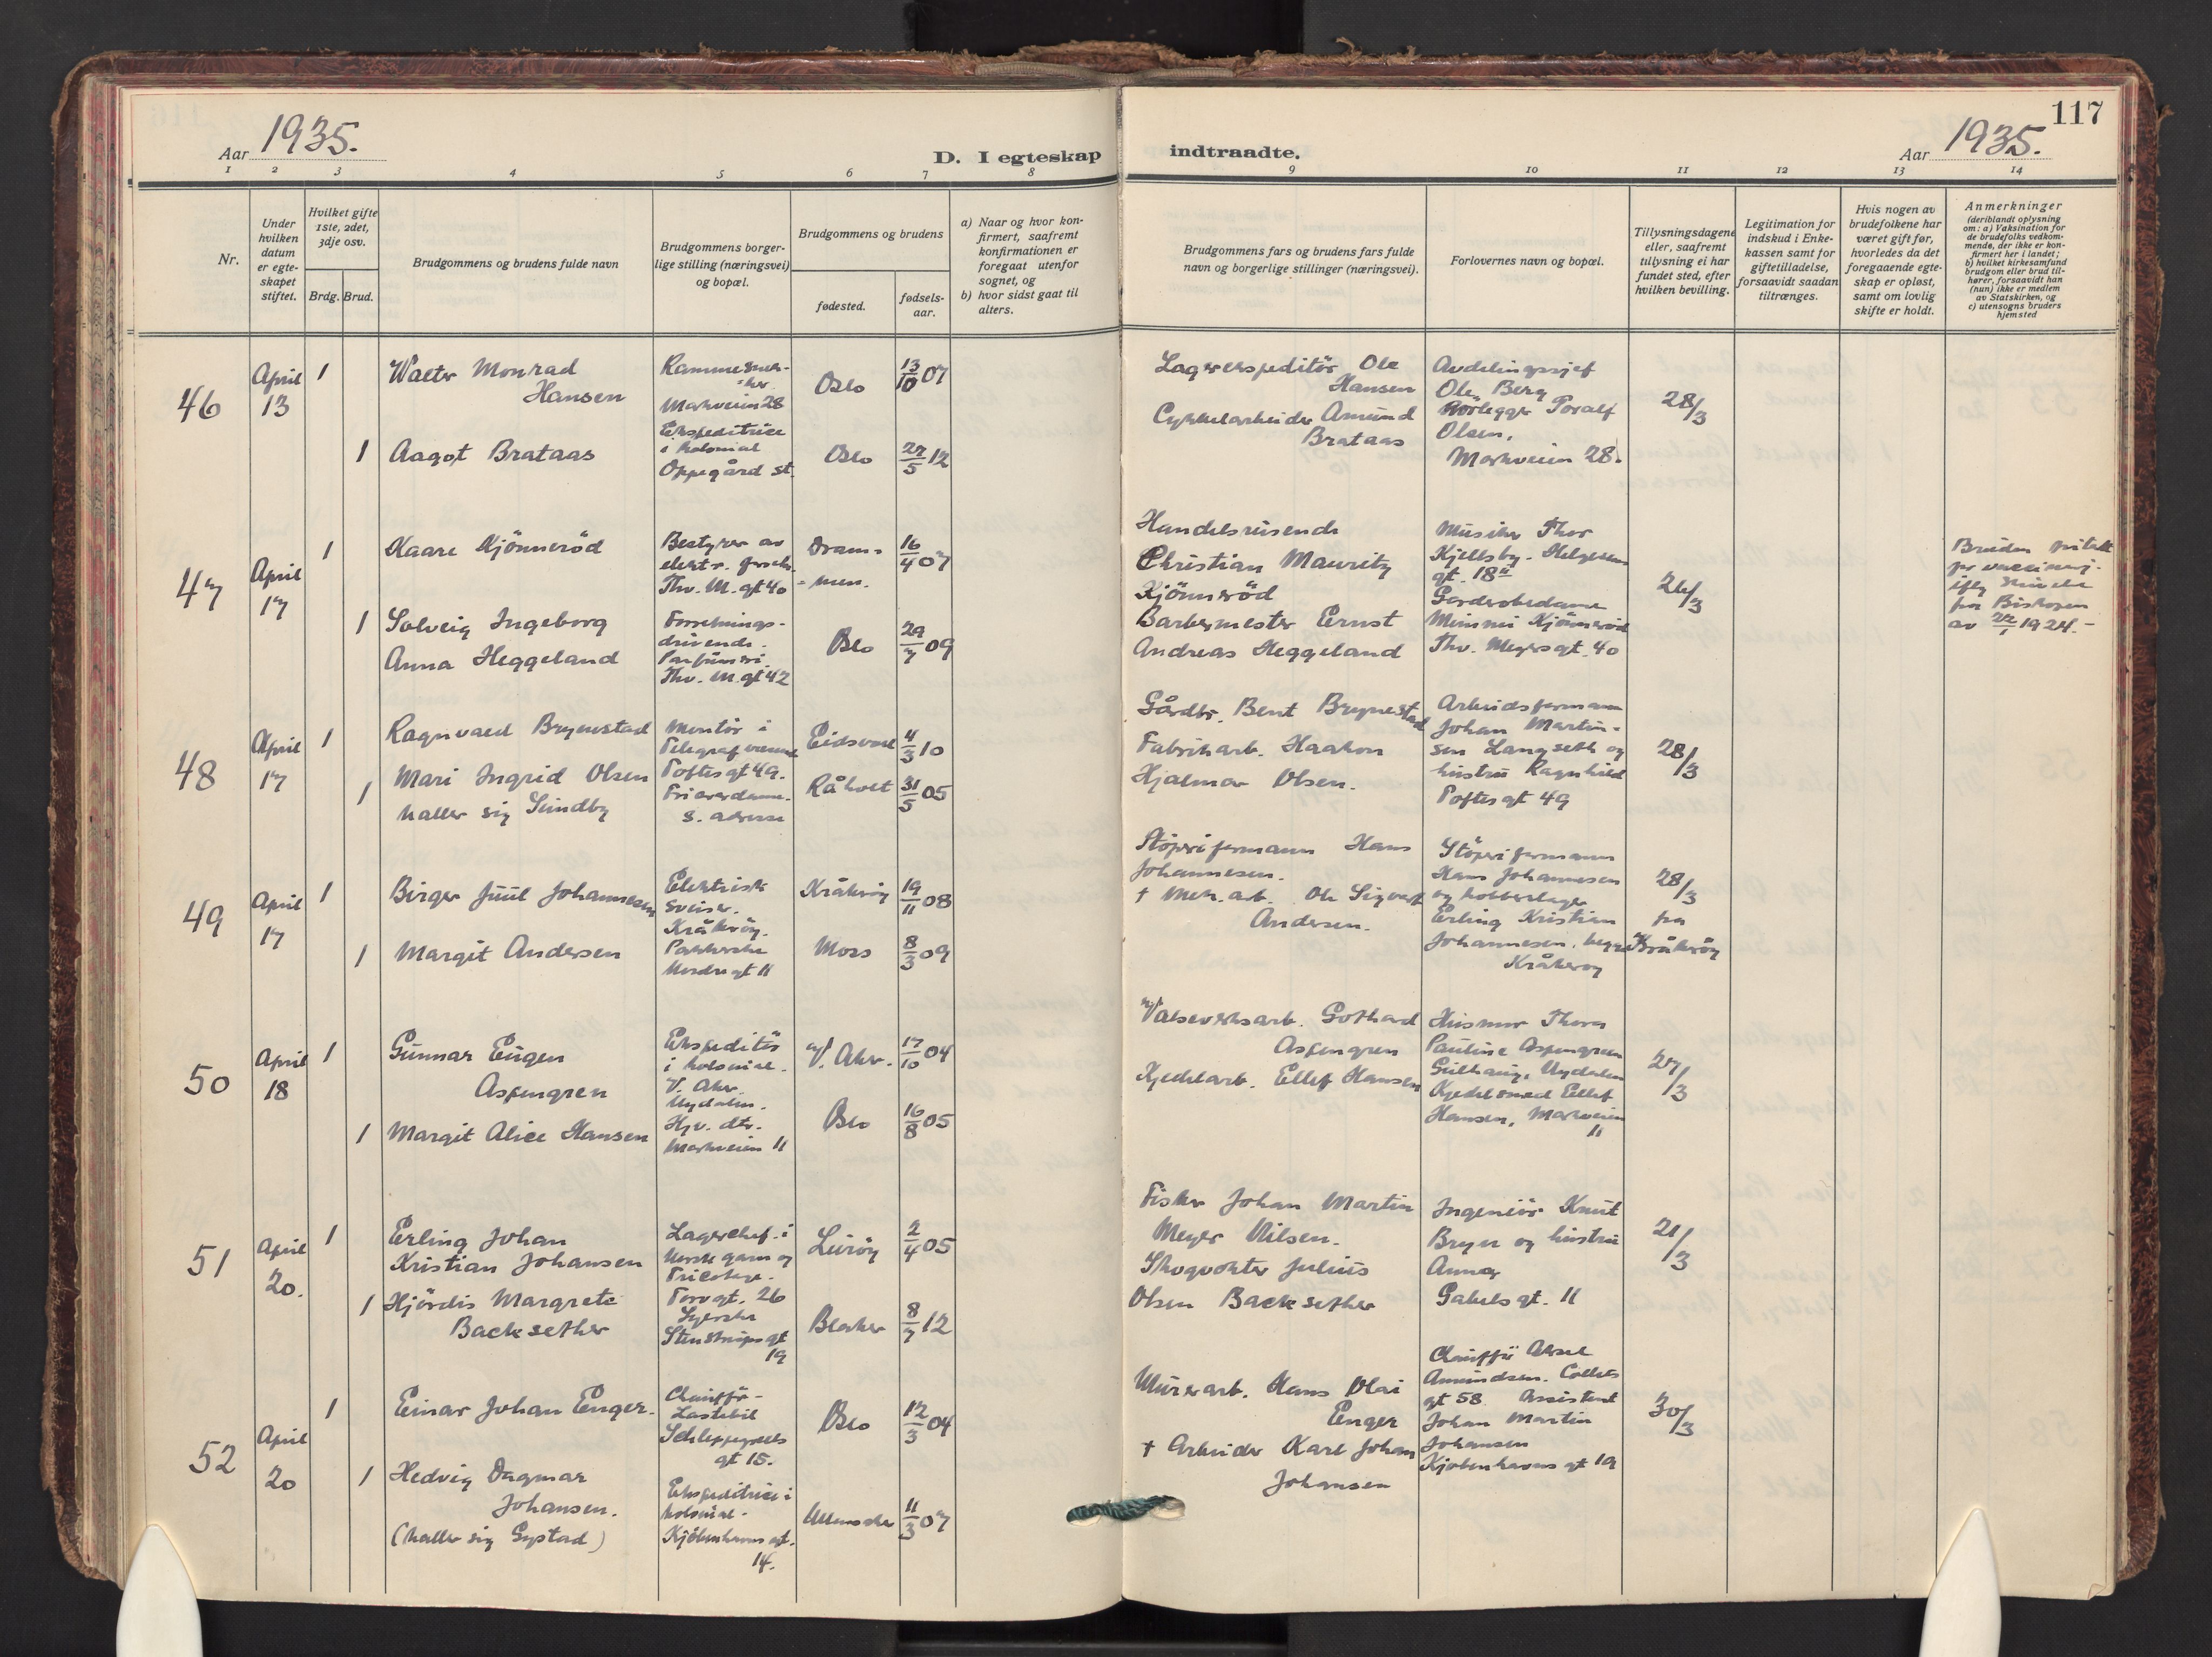 117
Aar 1935.
D. I egteskap
indtraadte.
Aar 1935.
1 2 3 4 5 6 7 8 9 10 11 12 13 14
Nr.
Under
hvilken
datum
er egte-
skapet
stiftet.
Hvilket gifte
1ste, 2det,
3dje osv.
Brdg. Brud.
Brudgommens og brudens fulde navn
Brudgommens borger-
lige stilling (næringsvei)
og bopæl.
Brudgommens og brudens
fødested.
fødsels-
aar.
a) Naar og hvor kon-
firmert, saafremt
konfirmationen er
foregaat utenfor
sognet, og
b) hvor sidst gaat til
alters.
Brudgommens fars og brudens fars fulde
navn og borgerlige stillinger (næringsvei).
Forlovernes navn og bopæl.
Tillysningsdagene
eller, saafremt
tillysning ei har
fundet sted, efter
hvilken bevilling.
Legitimation for
indskud i Enke-
kassen samt for
giftetilladelse,
forsaavidt saadan
tiltrænges.
Hvis nogen av
brudefolkene har
været gift før,
hvorledes da det
foregaaende egte-
skap er opløst,
samt om lovlig
skifte er holdt.
Anmerkninger
(deriblandt oplysning
om: a) Vaksination for
de brudefolks vedkom-
mende, der ikke er kon-
firmert her i landet;
b) hvilket kirkesamfund
brudgom eller brud til-
hører, forsaavidt han
(hun) ikke er medlem
av Statskirken, og
c) utensogns bruders
hjemsted
46
April
13
1
Walter Monrad
Hansen
Markveien 28
Oslo
13/10 07
1
Aagot Brataas
Ekspeditrice
i kolonial
Oppegård st.
Oslo
22/5 12
Lagerekspeditör Ole
Hansen
Cykkelarbeider Amund
Brataas
Avdelingssjef
Ole Berg
Rörlegger Toralf
Olsen,
Markveien 28.
28/3
47
April
17
1
Kaare Kjönneröd
Bestyrer av
elektr. forretn.
Thv. M. gt 40
Dram-
-men.
16/4 07
1
Solveig Ingeborg
Anna Heggeland
Forretnings-
drivende.
Parfumeri.
Thv. M. gt 42
Oslo
29/7 09
Handelsreisende
Christian Mauritz
Kjönneröd
Barbermester Ernst
Andreas Heggeland
Musiker Thor
Kjellsby. Helgesens
gt. 18
Garderobedame
Mimmi Kjönneröd
Thv. Meyersgt. 40
26/3
Bruden
for Biskopen
av 22/1 1924.-
48
April
17
1
Ragnvald Brynestad
Montör i
Telegrafvesenet
Toftes gt 49.
Eidsvoll
4/3 10
1
Mari Ingrid Olsen
kaller sig Sundby
Friserdame.
s. adresse
Råholt
31/5 05
Gårdbr. Bent Brynestad
Fabrikarb. Haakon
Hjalmar Olsen.
Arbeidsformann
Johan Martin-
sen Langseth og
hustru Ragnhild
Toftes gt 49
28/3
49
April
17
1
Birger Juul Johannesen
Elektrisk
sveiser.
Kråkeröy.
Kråkeröy
19/11 08
1
Margit Andersen
Pakkerske
Nordregt 11
Moss
8/3 09
Stöperiformann Hans
Johannesen.
† Mek. arb. Ole Sigvart
Andersen.
Stöperiformann
Hans Johannesen
og kobberslager
Erling Kristian
Johannesen, begge
Kråkeröy
28/3
fra
Kråkeröy
50
April
18
1
Gunnar Eugen
Aspengren
Ekspeditör
i kolonial.
V. Aker.
Nydalen.
V. Aker.
17/10 04
1
Margit Alice Hansen
Hjv. dtr.
Markveien 11
Oslo
16/8 05
Valseverksarb. Gothard
Aspengren
Kjedelarb. Ellef Hansen
Husmor Thora
Pauline Aspengreen
Gullhaug, Nydalen
Kjedelsmed Ellef
Hansen, Markveien
11
27/3
51
April
20.
1
Erling Johan
Kristian Johansen
Lagerchef. i
Norsk garn og
Tricotage.
Torvgt. 26
Leiröy
2/4 05
1
Hjördis Margrete
Backsether
Syerske
Stenstrups gt
19
Blaker
8/7 12
Fisker Johan Martin
Meyer Nilsen.
Skogvokter Julius
Olsen Backsether
Ingeniör Knut
Bryn og hustru
Anna
Gabels gt. 11
21/3
52
April
20
1
Einar Johan Enger.
Chaufför-
Lastebil
Schleppegrells
gt 15.
Oslo
12/3 04
1
Hedvig Dagmar
Johansen.
(kaller sig Gystad)
Ekspeditrice i
kolonial.
Kjöbenhavns gt.
14.
Ullensaker
11/3 07
Murerarb. Hans Olai
Enger
† Arbeider Karl Johan
Johansen
Chaufför Aksel
Amundsen. Colletts
gt 58. Assistent
Johan Martin
Johansen
Kjøbenhavns gt 19
30/3